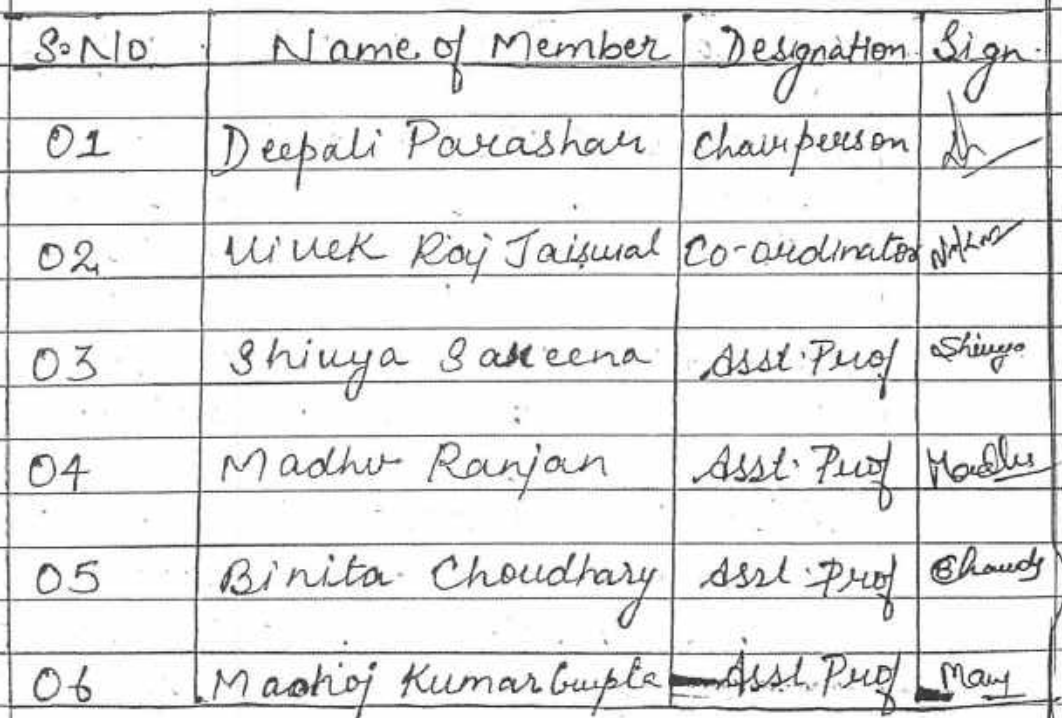 S.No Name of Member Designation Sign.
01 Deepali Parashar Chairperson
02 Vivek Raj Jaiswal Co-ordinator
03 Shivya Saxeena Asst. Prof Shivya
04 Madhu Ranjan Asst. Prof Madhu
05 Binita Choudhary Asst. Prof
06 Kumar Gupta Asst. Prof